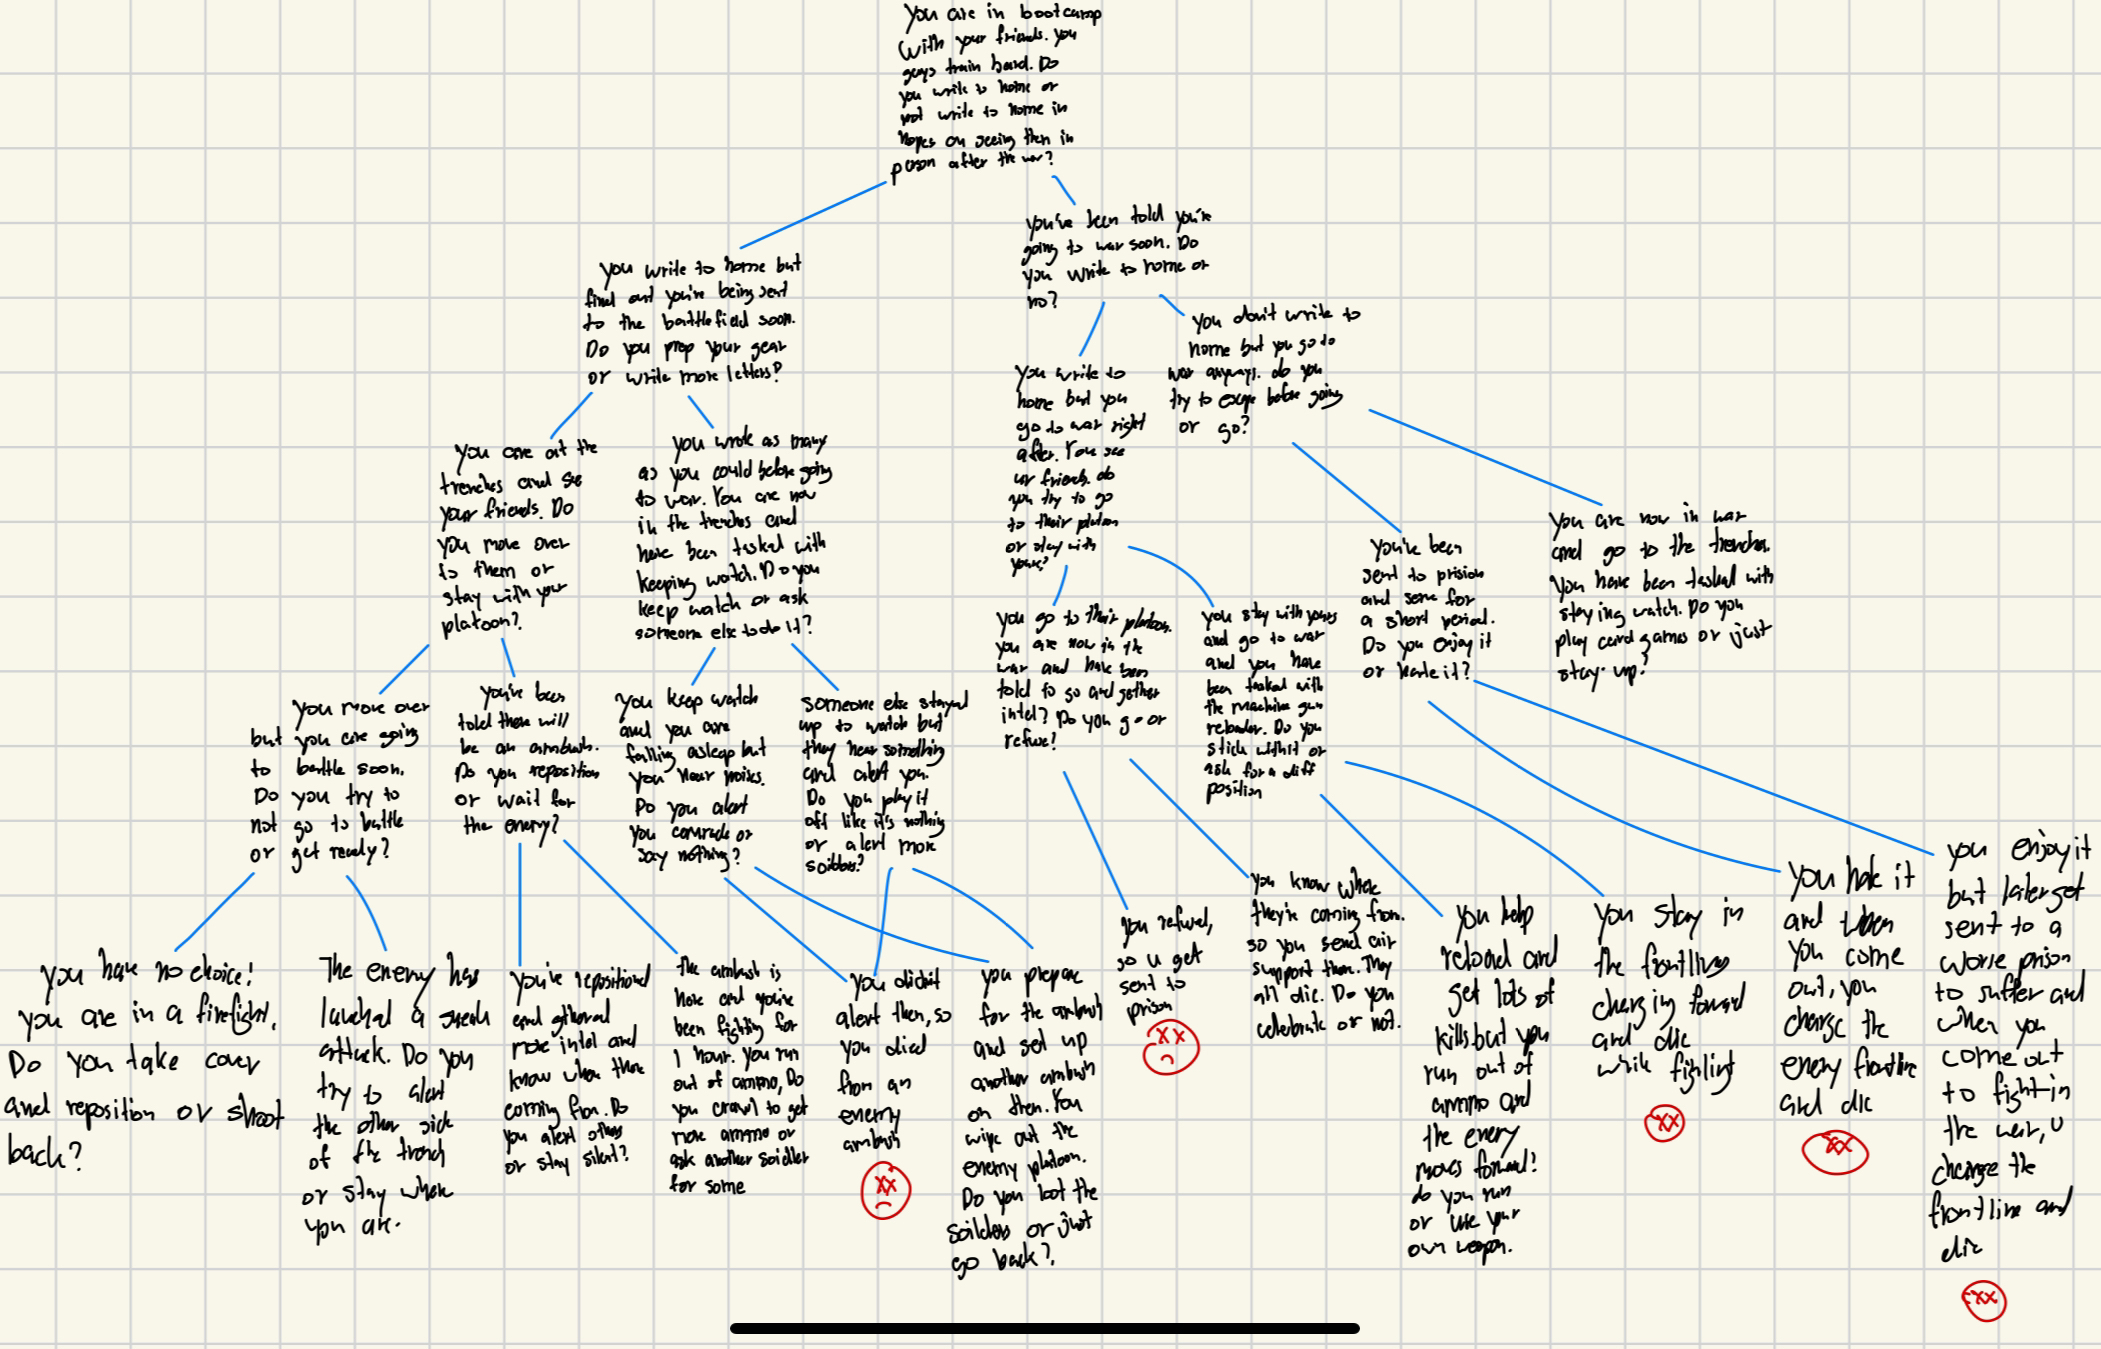 You are in bootcamp
with your friends. You
guys train hard. Do
you write to home or
not write to home in
hopes on seeing then in
person after the war?
You've been told you're
going to war soon. Do
you write to home or
no?
You write to home but
find out you're being sent
to the battlefield soon.
Do you prep your gear
or write more letters?
You don't write to
home but you go to
war anyways. do you
try to escape before going
or go?
You write to
home but you
go to war right
after. You see
ur friends. do
you try to go
to their platon
or stay with
yours?
You are at the
trenches and see
your friends. Do
you move over
to them or
stay with your
platoon?
You wrote as many
as you could before going
to war. You are now
in the trenches and
have been tasked with
keeping watch. Do you
keep watch or ask
someone else to do it?
You've been
sent to prision
and serve for
a short period.
Do you enjoy it
or hate it?
You are now in war
and go to the trenches.
You have been tasked with
staying watch. Do you
play card games or just
stay up?
You go to their platoon.
you are now in the
war and have been
told to go and gather
intel? Do you go or
refuse?
you stay with yours
and go to war
and you have
been tasked with
the machine gun
reloader. Do you
stick with it or
ask for a diff
position
You move over
but you are going
to battle soon.
Do you try to
not go to battle
or get ready?
You've been
told there will
be an ambush.
Do you reposition
or wait for
the enemy?
You keep watch
and you are
falling asleep but
you hear noises.
Do you alert
you comrade or
say nothing?
someone else stayed
up to watch but
they hear something
and alert you.
Do you play it
off like it's nothing
or alert more
You have no choice!
you are in a firefight.
Do you take cover
and reposition or shoot
back?
The enemy has
a
attack. Do you
try to alert
the other side
of the trench
or stay where
you are.
You've repositioned
and gathered
more intel and
know where there
coming from. Do
you alert others
or stay silent?
the ambush is
here and you've
been fighting for
1 hour. You run
out of ammo, Do
you crawl to get
more ammo or
ask another soidler
for some
You didn't
alert then, so
you died
from an
enemy
ambush
XX
you prepare
for the ambush
and set up
another ambush
on then. You
wipe out the
enemy platoon.
Do you loot the
soilders or just
go back?
You refused,
so u get
sent to
prison
XX
You know where
they're coming from.
so you send air
support then. They
all die. Do you
celebrate or not.
You help
reload and
get lots of
kills but you
run out of
ammo and
the enemy
moves forward!
do you run
or use your
own weapon.
You stay in
the frontlines
charging forward
and die
while fighting
XX
You hate it
and when
you come
out, you
charge the
enemy frontline
and die
XX
you enjoy it
but later get
sent to a
worse prison
to suffer and
when you
come out
to fight in
the war, u
charge the
frontline and
die
XX